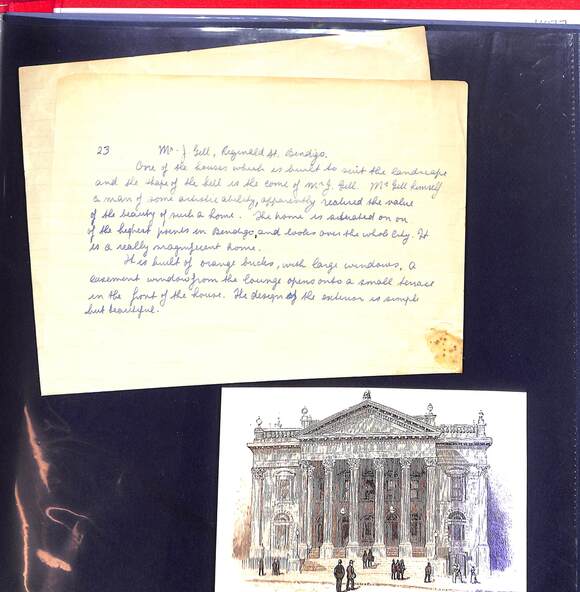 23 Mr. J Gill, Reginald St. Bendigo.
One of the houses which is built to suit the landscape
and the shape of the hill is the come of Mr J. Gill. Mr Gill himself
a man of some artistic ability, apparently realised the value
of the beauty of such a home. The home is situated on on
of the highest points in Bendigo, and looks over the whole City. It
is a really magnificent home.
It is built of orange bricks, with large windows. A
casement window from the lounge opens onto a small terrace
in the front of the house. The design of the exterior is simple
but beautiful.